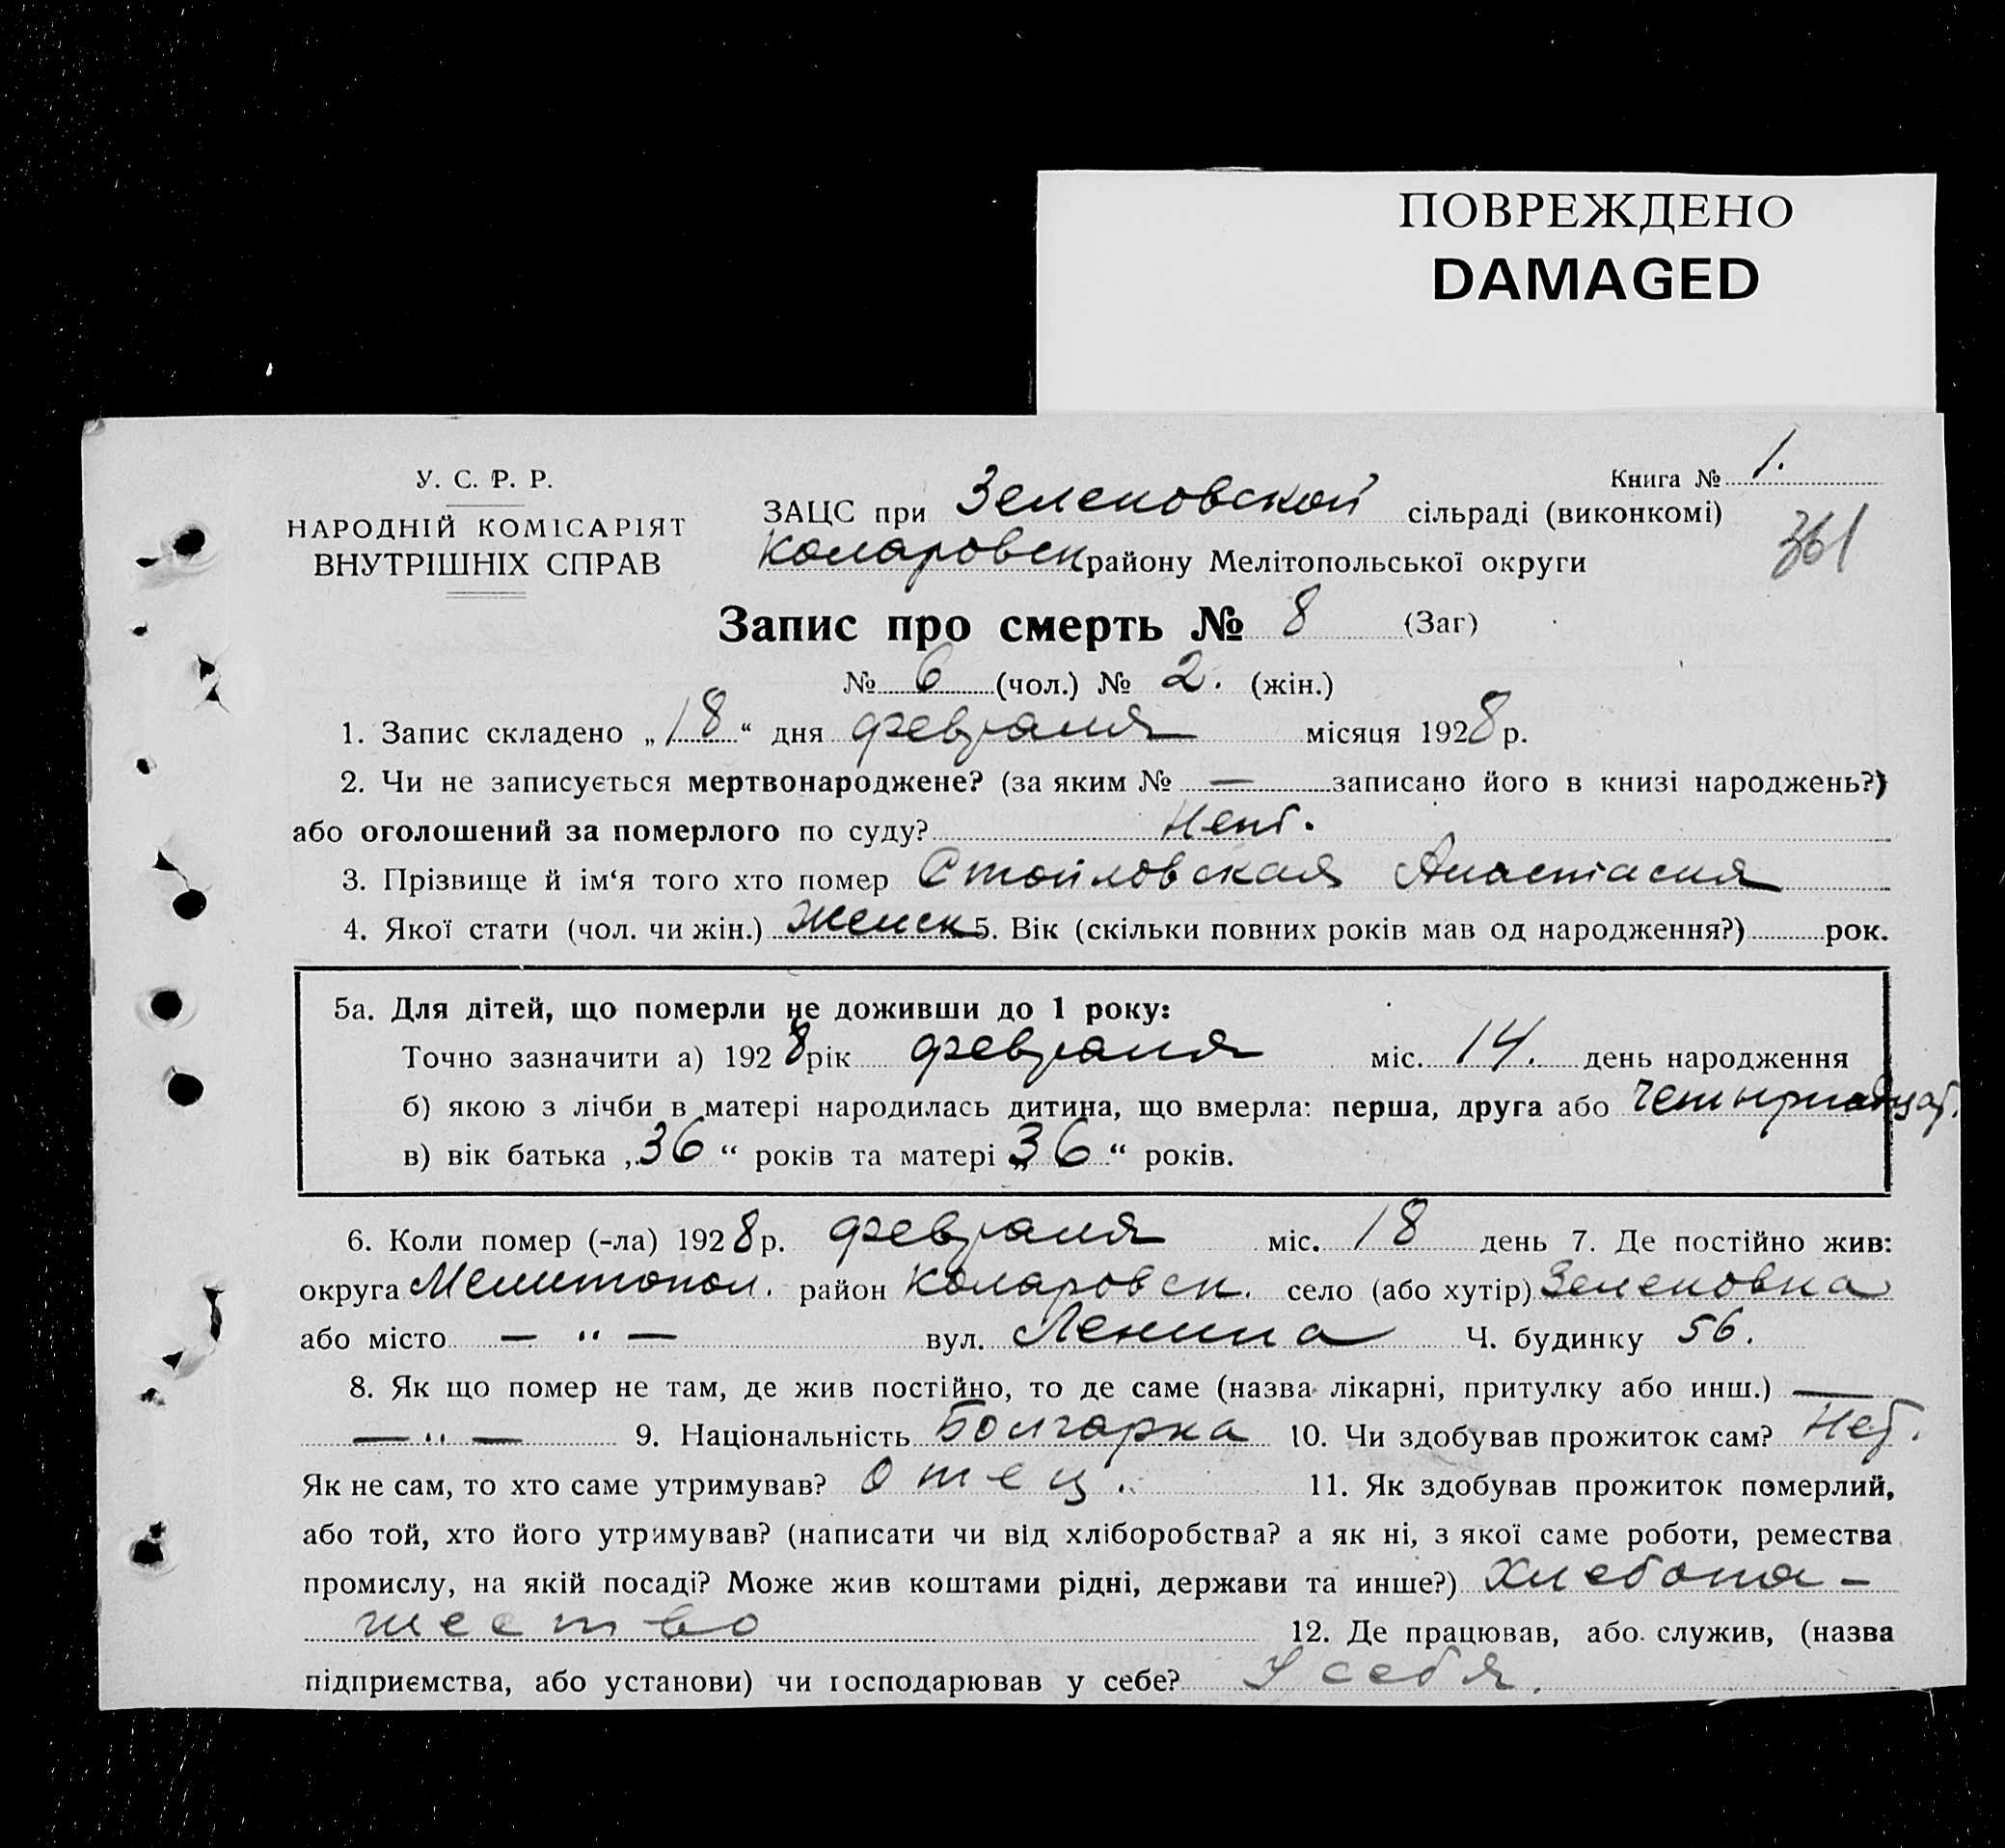 ПОВРЕЖДЕНО
DAMAGED
У. С. Р. Р.
НАРОДНІЙ КОМІСАРІЯТ
ВНУТРІШНІХ СПРАВ
Книга № 1.
ЗАЦС при Зеленовской сільраді (виконкомі)
361
Коларовск району Мелітопольської округи
Запис про смерть № 8 (Заг)
№ 6 (чол.) № 2. (жін.)
1. Запис складено „18“ дня февраля місяця 1928 р.
2. Чи не записується мертвонароджене? (за яким № — записано його в книзі народжень?)
або оголошений за померлого по суду? Нет.
3. Прізвище й ім‘я того хто помер Стойловская Анастасия
4. Якої стати (чол. чи жін.) женск 5. Вік (скільки повних років мав од народження?) рок.
5а. Для дітей, що померли не доживши до 1 року:
Точно зазначити а) 1928 рік февраля міс. 14. день народження
б) якою з лічби в матері народилась дитина, що вмерла: перша, друга або четырнадцат.
в) вік батька „36“ років та матері „36“ років.
6. Коли помер (-ла) 1928 р. февраля міс. 18 день 7. Де постійно жив:
округа Мелитопол. район Коларовск. село (або хутір) Зеленовка
або місто — " — вул. Ленина Ч. будинку 56.
8. Як що помер не там, де жив постійно, то де саме (назва лікарні, притулку або инш.) —
— " — 9. Національність Болгарка 10. Чи здобував прожиток сам? Нет.
Як не сам, то хто саме утримував? Отец. 11. Як здобував прожиток померлий,
або той, хто його утримував? (написати чи від хліборобства? а як ні, з якої саме роботи, ремества
промислу, на якій посаді? Може жив коштами рідні, держави та инше?) Хлебопа-
шество 12. Де працював, або служив, (назва
підприємства, або установи) чи господарював у себе? У себя.